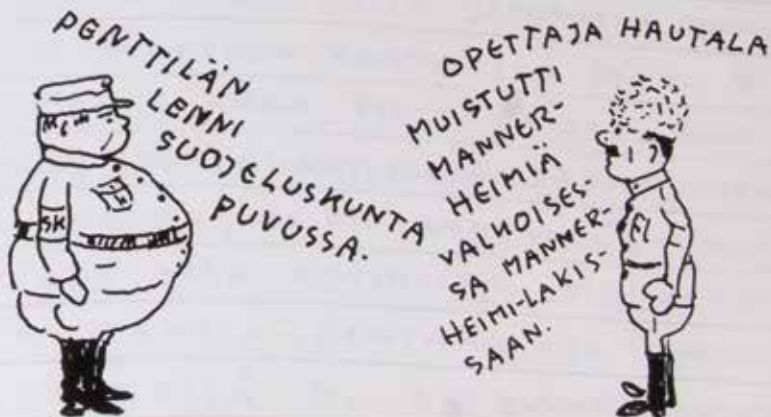 PENTTILÄN
LENNI
SUOJELUSKUNTA
PUVUSSA.
SK
OPETTAJA HAUTALA
MUISTUTTI
MANNER-
HEIMIÄ
VALKOISES-
SA MANNER-
HEIMI-LAKIS-
SAAN.